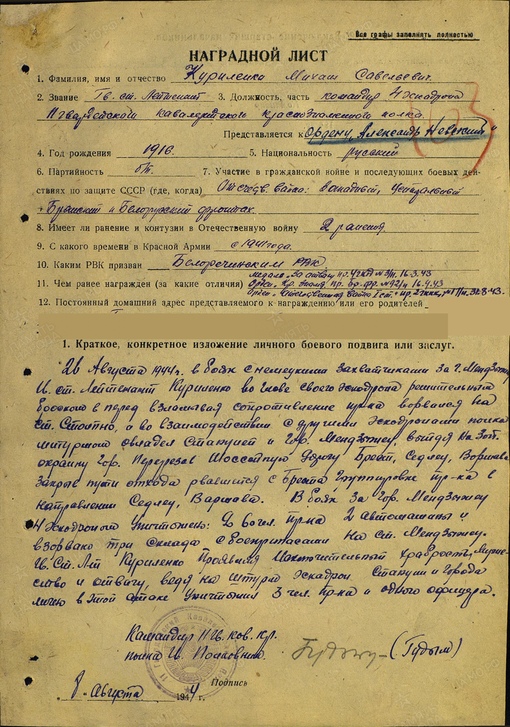 Все графы заполнять полностью
НАГРАДНОЙ ЛИСТ
1. Фамилия, имя и отчество Куриленко Михаил Савельевич
2. Звание Гв. ст. Лейтенант 3. Должность, часть командир 4 эскадрона
кавалерийского краснознаменного полка
Представляется к Ордену "Александр Невский"
4. Год рождения 1916 5. Национальность русский
6. Партийность 7. Участие в гражданской войне и последующих боевых дей-
ствиях по защите СССР (где, когда) Отечеств. война. Западный,
Брянский и Белорусский фронтах
8. Имеет ли ранение и контузии в Отечественную войну 2 ранения
9. С какого времени в Красной Армии с 1941 года.
10. Каким РВК призван Белореченским РВК
медаль "За отвагу" 16.3.43
11. Чем ранее награжден (за какие отличия) 16.9.43
12. Постоянный домашний адрес представляемого к награждению или его родителей
1. Краткое, конкретное изложение личного боевого подвига или заслуг.
26 Августа 1944г. в боях с немецкими захватчиками за г. Мендзыжец
Гв. ст. Лейтенант Куриленко во главе своего эскадрона решительным
броском в перед взламывая сопротивление пр-ка ворвался на
ст. а во взаимодействии с другими эскадронами полка
штурмом овладел станцией и гор. Мендзыжец, выйдя на
окраину гор. Перерезав Шоссейную дорогу Брест, Седлец, Варшава
Закрыв пути отхода рвавшейся с Бреста Группировке пр-ка в
направлении Седлец, Варшава. В боях за Гор. Мендзыжец
4 эскадроном уничтожено: пр-ка 2 автомашины и
взорвано три склада с боеприпасами на ст. Мендзыжец.
Гв. Ст. Лт Куриленко проявил исключительный храбрость,
и отвагу, ведя на штурм эскадрон станции и города
лично в этой атаке уничтожил 3 чел. пр-ка и одного офицера.
Командир кав. кр.
полка Гв. Полковник (Гудым)
Подпись
8. Августа 1944 г.